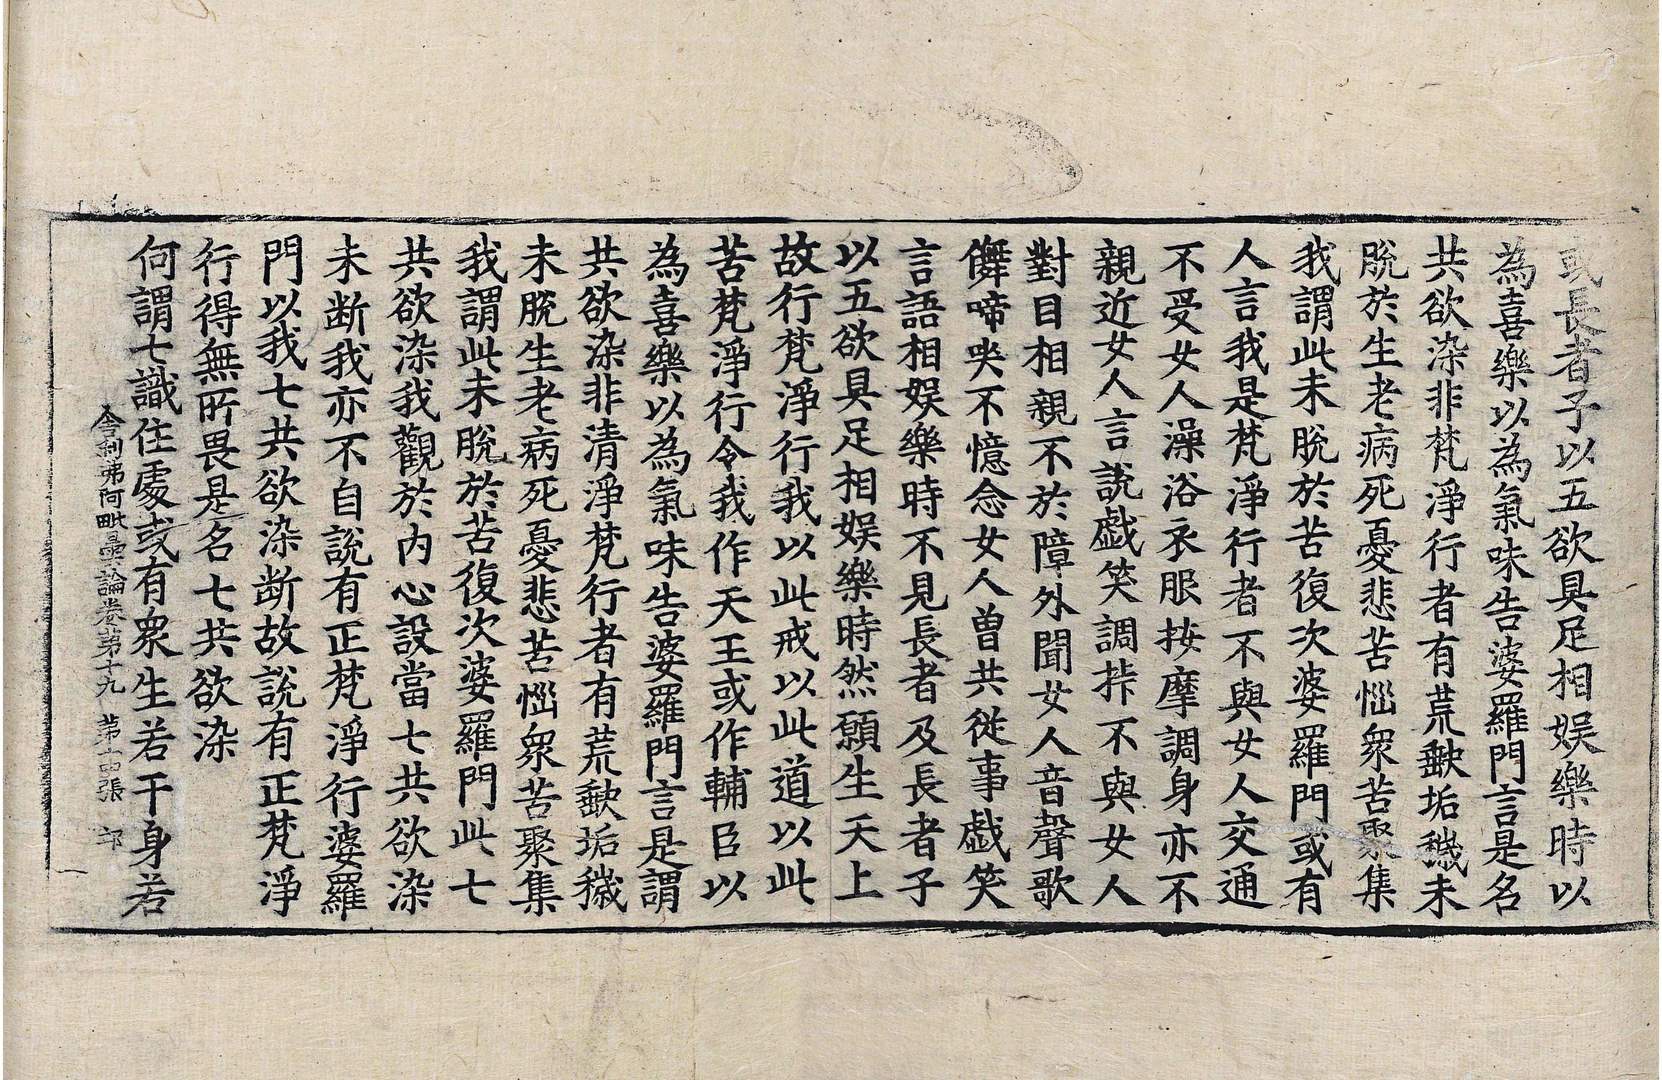 或長者子以五欲具足相娛樂時以
為喜樂以為氣味告婆羅門言是名
共欲染非梵淨行者有荒歡垢穢未
脫於生老病死憂悲苦惱眾苦聚集
我謂此未脫於苦復次婆羅門或有
人言我是梵淨行者不與女人交通
不受女人澡浴衣服按摩調身亦不
親近女人言說戲笑調挊不與女人
對目相親不於障外聞女人音聲歌
儛啼㗛不憶念女人曾共從事戲笑
言語相娛樂時不見長者及長者子
以五欲具足相娛樂時然願生天上
故行梵淨行我以此戒以此道以此
苦梵淨行令我作天王或作輔臣以
為喜樂以為氣味告婆羅門言是謂
共欲染非清淨梵行者有荒歡垢穢
未脫生老病死憂悲苦惱眾苦聚集
我謂此未脫於苦復次婆羅門此七
共欲染我觀於內心設當七共欲染
未断我亦不自說有正梵淨行婆羅
門以我七共欲染断故說有正梵淨
行得無所畏是名七共欲染
何謂七識住處或有眾生若干身若
舍利弗阿毗曇論卷第十九 第十四張